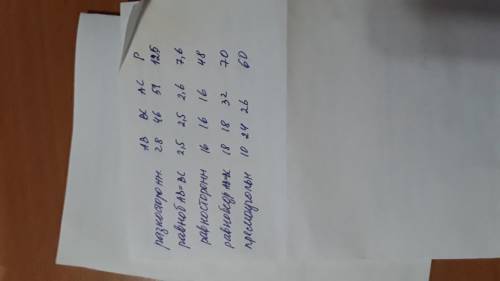 AB BC AC P
разносторонн 28 46 51 125
равноб AB=BC 2,5 2,5 2,6 7,6
равносторонн 16 16 16 48
равнобедр 18 18 32 70
прямоугольн 10 24 26 60